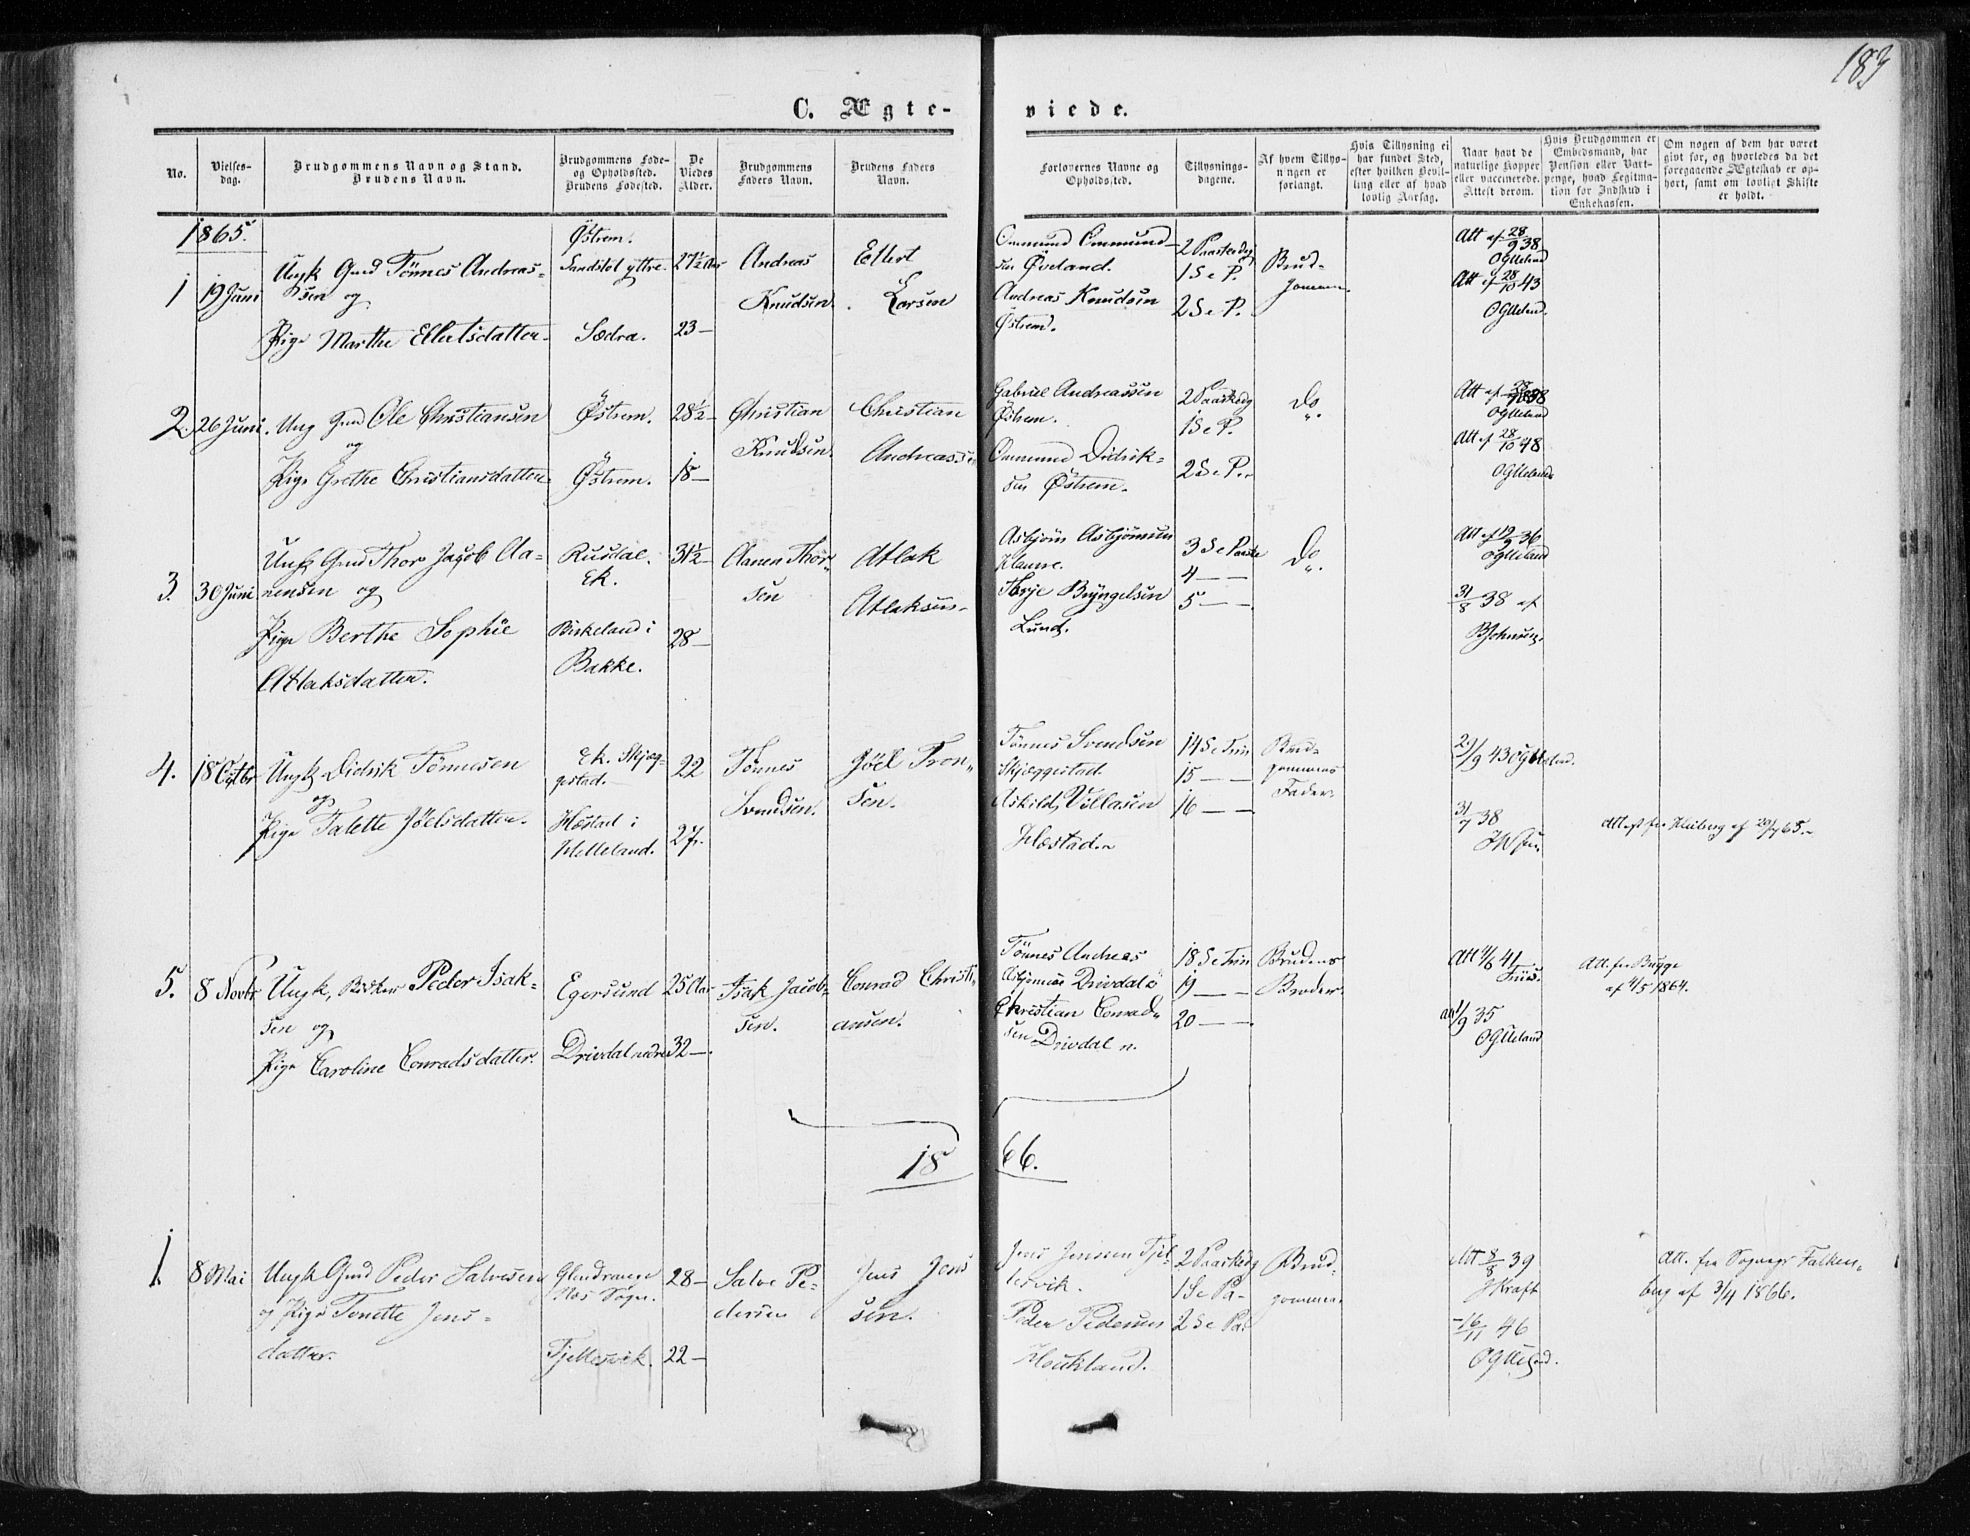 183
C. Ægte-
viede.
No.
Vielses-
dag.
Brudgommens Navn og Stand.
Brudens Navn.
Brudgommens Føde-
og Opholdssted.
Brudens Fødested.
De
Viedes
Alder.
Brudgommens
Faders Navn.
Brudens Faders
Navn.
Forlovernes Navne og
Opholdssted.
Tillysnings-
dagene.
Af hvem Tillys-
ningen er
forlangt.
Hvis Tillysning ei
har fundet Sted,
efter hvilken Bevil-
ling eller af hvad
lovlig Aarsag.
Naar havt de
naturlige Kopper
eller vaccinerede.
Attest derom.
Hvis Brudgommen er
Embedsmand, har
Pension eller Vart-
penge, hvad Legitima-
tion for Indskud i
Enkekassen.
Om nogen af dem har været
givt før, og hvorledes da det
foregaaende Ægteskab er op-
hørt, samt om lovligt Skifte
er holdt.
1865.
1
19 Juni
Ungk Gmd Tønnes Andreas-
sen og
Pige Marthe Ellertsdatter
Østrem.
Sandstøl yttre.
Sædra.
27½ Aar
23 —
Andreas
Knudsen
Ellert
Larsen
Ommund Ommund-
sen Øveland.
Andreas Knudsen
Østrem.
2 Paaskedg
1 S e P.
2 S e P.
Brud-
gommen.
Att af 28/9 38
OGUeland
Att af 28/10 43
OGUeland.
2.
26 Juni.
Ung Gmd Ole Christiansen
og
Pige Grethe Christiansdatter
Østrem.
Østrem.
28½ —
18 —
Christian
Knudsen
Christian
Andreassen
Gabriel Andreassen
Østrem.
Ommund Didrik-
sen Østrem.
2 Paaskedg
1 S e P.
2 S e P.
Do
".
Att af 28/9 38
OGUeland
Att af 28/10 48
OGUeland
3.
30 Juni
Ungk Gmd Thor Jacob Aa-
nensen og
Pige Berthe Sophie
Atlaksdatter.
Rusdal.
Ek.
Birkeland i
Bakke.
31½ —
28 —
Aanen Thor-
sen
Atlak
Atlaksen
Asbjørn Asbjørnsen
Terje Bryngelsen
Lund.
3 S e Paaske
4 — —
5 — —
Do
".
Att af 19/9 36
OGUeland
31/8 38 af
4.
18 Octbr
Ungk Didrik Tønnesen
og
Pige Talette Jöelsdatter.
Ek. Skjæg-
gestad.
Hæstad i
Helleland.
22
27.
Tønnes
Svendsen.
Jöel Tron-
sen.
Tønnes Svendsen
Skjæggestad
Askild Villasen
Hæstad.
14 S e Trin
15 — —
16 — —
Brud-
gommens
Fader.
29/9 43 OGUeland.
31/7 38
5.
8 Novbr
Ungk, Bødker Peder Isak-
sen og
Pige Caroline Conradsdatter.
Egersund
Drivdal nedre
25 Aar
32 —.
Isak Jacob-
sen.
Conrad Christi-
ansen.
Tønnes Andreas
Asbjørnsen Drivdal ö
Christian Conrad-
sen Drivdal n.
18 S e Trin
19 — —
20 — —
Brudens
Broder.
Att 4/6 41
1/9 35
OGUeland
Att. fra Bugge
af 4/5 1864.
1866.
1
8 Mai
Ungk Gmd Peder Salvesen
og Pige Tonette Jens-
datter.
Glendrange
Næs Sogn.
Fjellesvik.
28 —
22 —
Salve Pe-
dersen
Jens Jen-
sen.
Jens Jensen Fjel-
lesvik.
Peder Pedersen
Houkland.
2 Paaskedg
1 S e Pa-
2 S e Pa.
Brud-
gommen.
Att 8/8 39
J Kraft
16/11 46
OGUeland.
Att. fra Sognepr Falken-
berg af 3/4 1866.